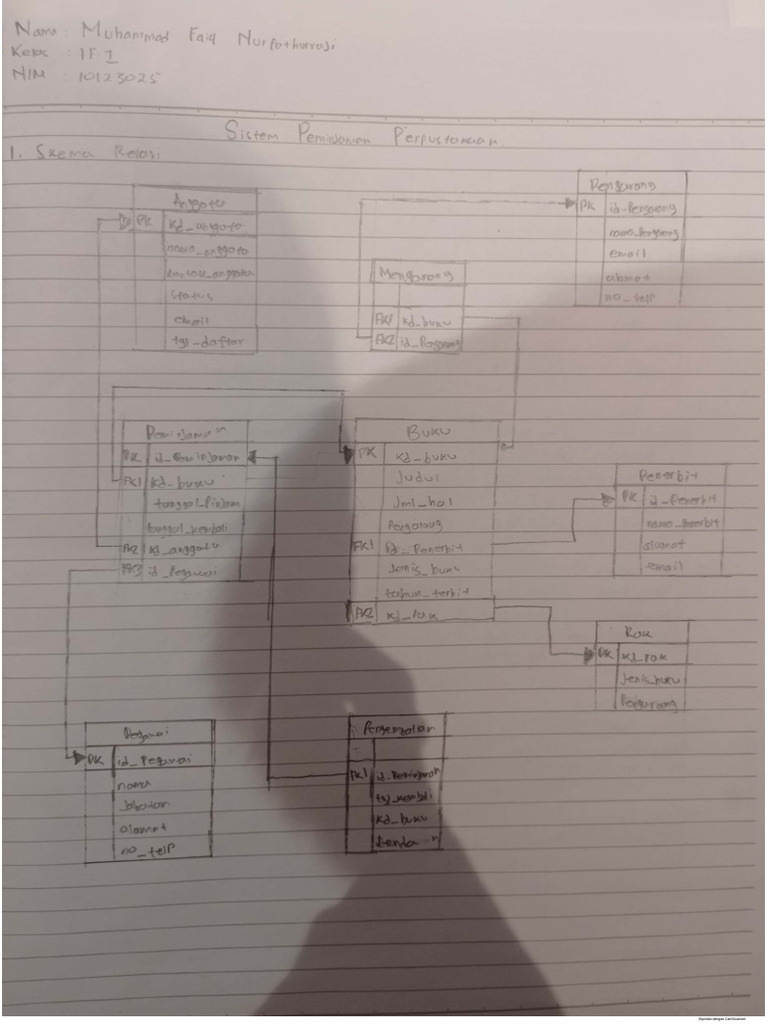 Nama : Muhammad Faiq Nurfathurroji
Kelas : IF.1
NIM : 10123025
Sistem Peminjaman Perpustakaan
1. Skema Relasi
Anggota
PK kd_anggota
nama_anggota
status
email
tgl_daftar
Pengarang
PK id_Pengarang
nama_Pengarang
email
alamat
no_telp
Mengarang
FK1 kd_buku
FK2 id_Pengarang
Peminjaman
PK id_Peminjaman
FK1 kd_buku
tanggal_Pinjam
tanggal_kembali
FK2 kd_anggota
FK3 id_Pegawai
Buku
PK kd_buku
Judul
Jml_hal
Pengarang
FK1 id_Penerbit
Jenis_buku
tahun_terbit
FK2 kd_rak
Penerbit
PK id_Penerbit
nama_Penerbit
alamat
email
Rak
PK kd_rak
Jenis_buku
Pengarang
Pegawai
PK id_Pegawai
nama
Jabatan
alamat
no_telp
Pengembalian
FK1 id_Peminjaman
tgl_kembali
kd_buku
Denda
Dipindai dengan CamScanner